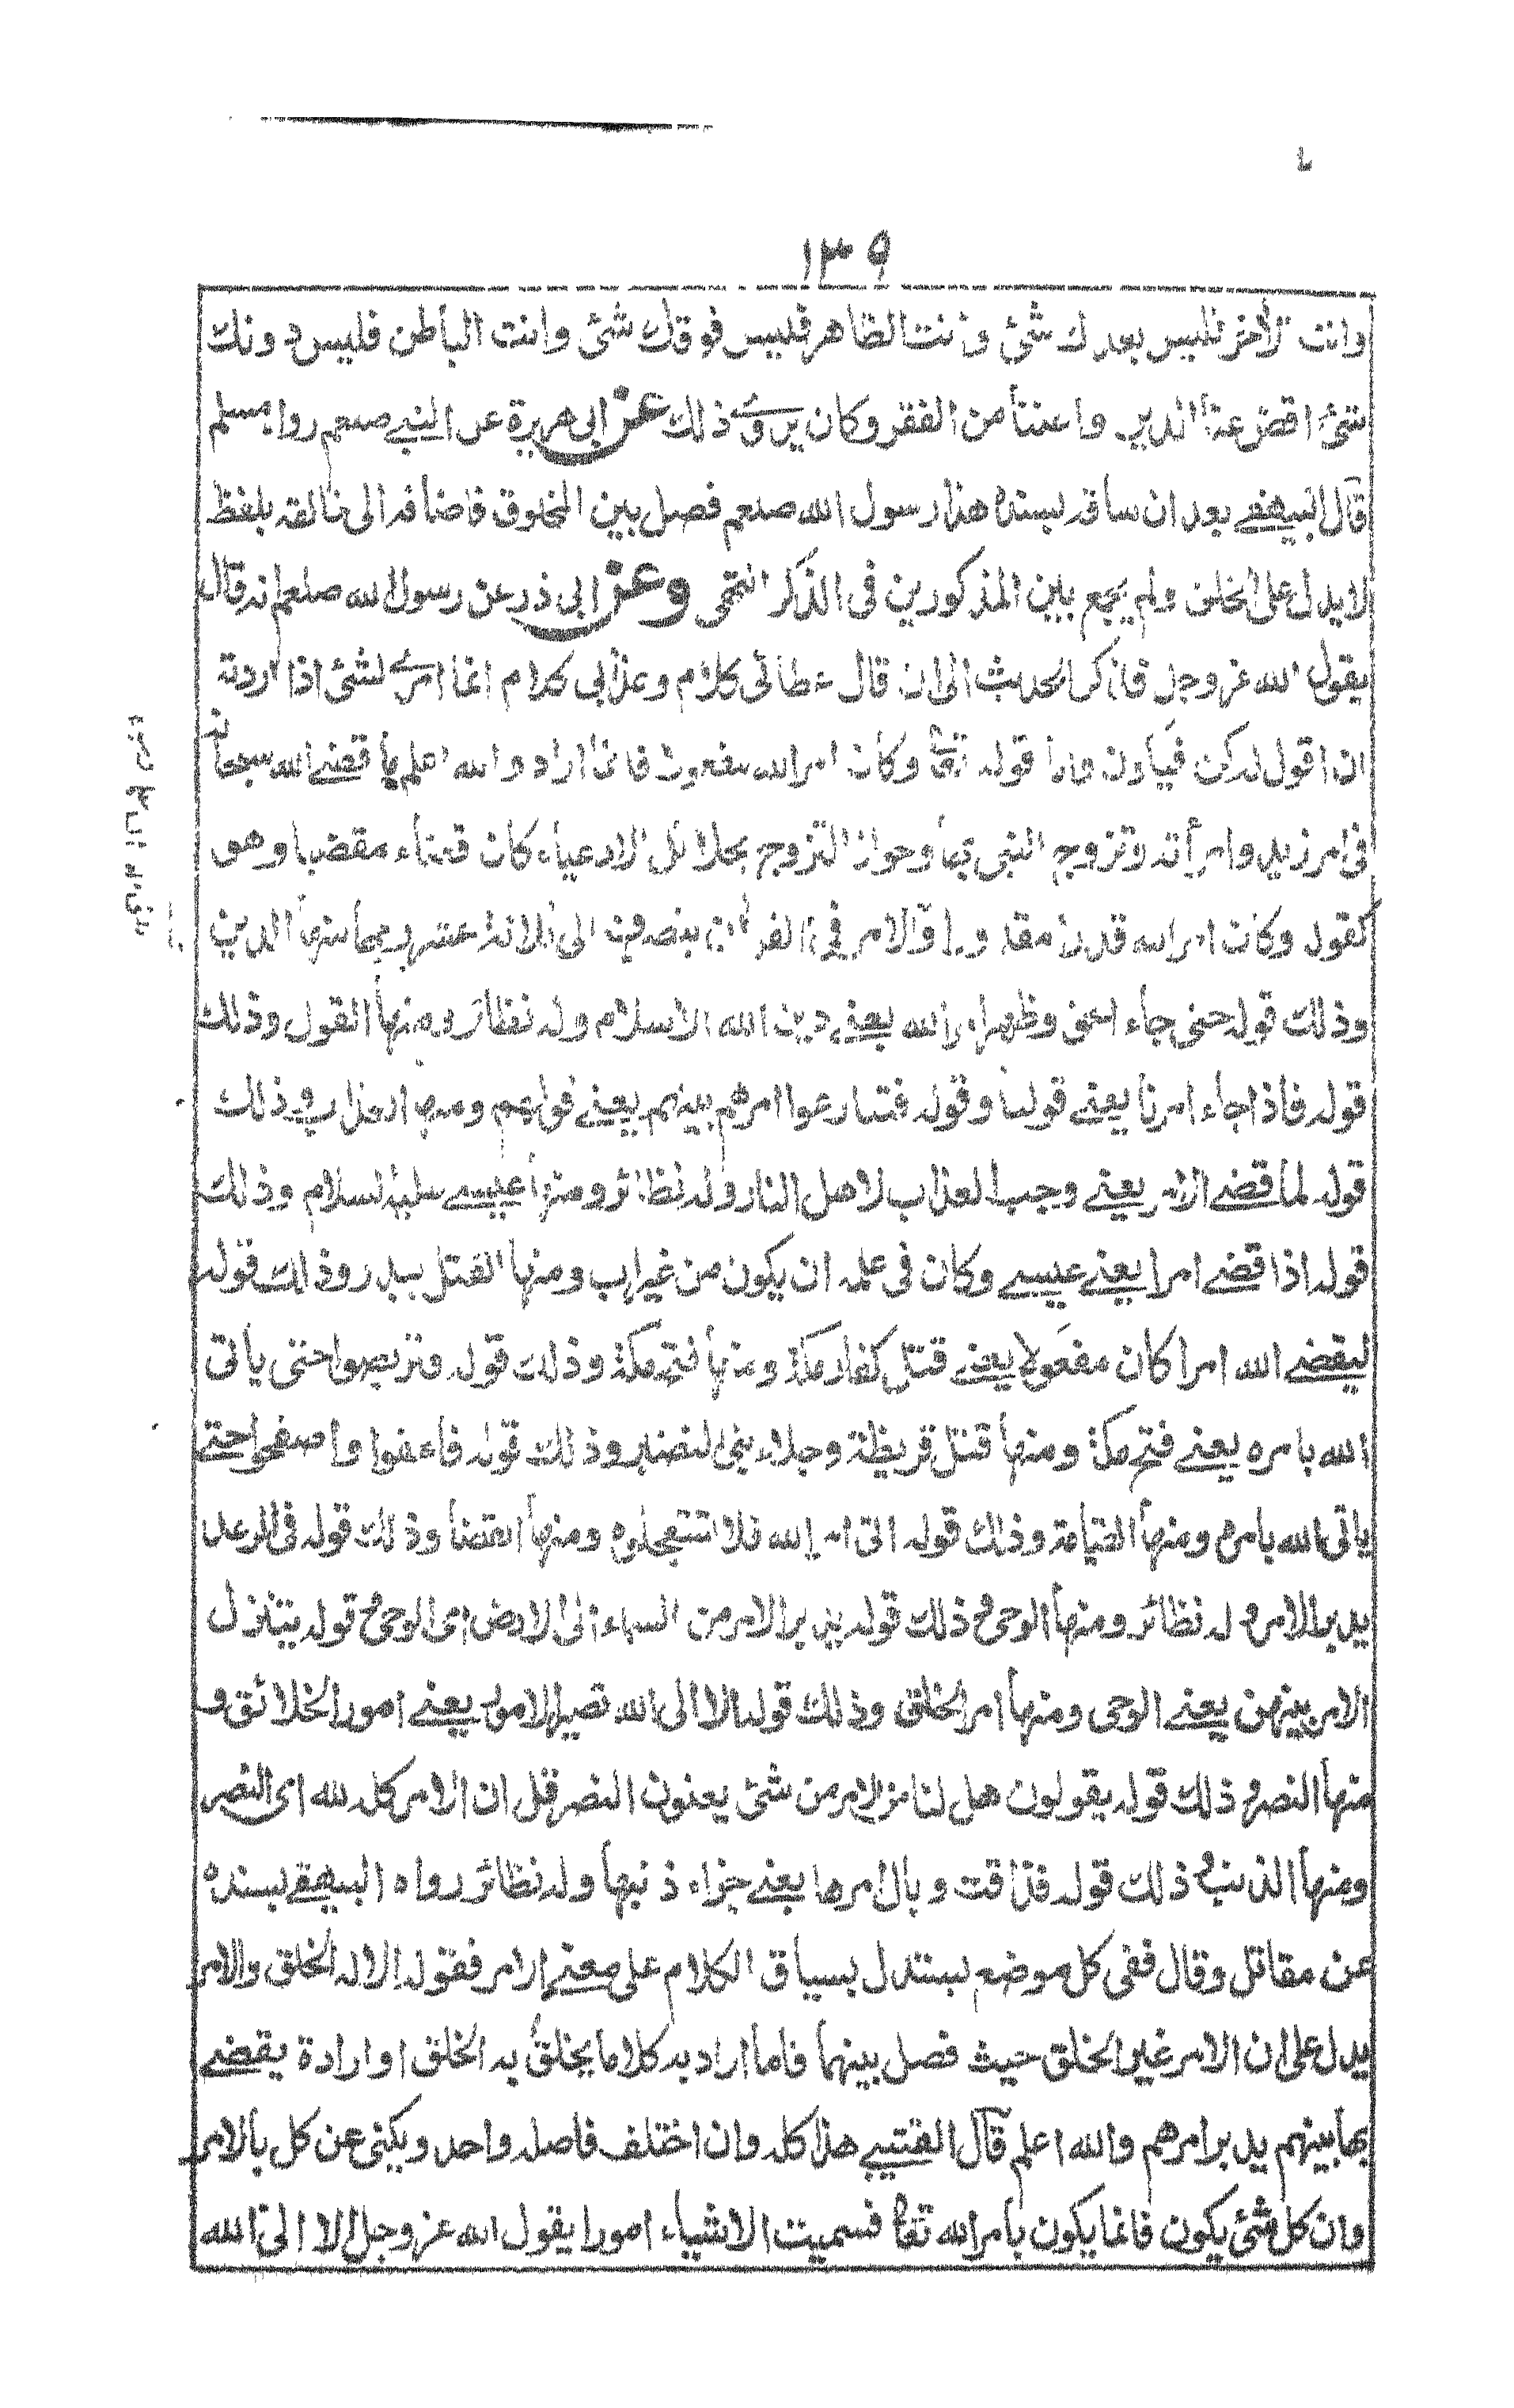 ١٣٩
وانت الأخر فليس بعدك شئ وانت الظاهر فليس فوقك شئ وانت الباطن فليس دونك
شئ اقض عنا الدين واغننا من الفقر وكان يروي ذلك عن ابى هريرة عن النبي صلعم رواه مسلم
قال البيهقي بعد ان ساقه بسنده هذا رسول الله صلعم فصل بين المخلوق فاضافه الى خالقه بلفظ
لا يدل على الخلق ولم يجمع بين المذكورين فى الذكر انتهى وعن ابى ذر عن رسول الله صلعم انه قال
يقول الله عز وجل فذكر الحديث الى ان قال عطائى كلام وعذابى كلام انما امرى لشئ اذا اردته
ان اقول له كن فيكون واما قوله تعالى وكان امر الله مفعولا فانما اراد والله اعلم بما قضى الله سبحانه
فى امر زيد وامرأته وتزوج النبى بها وجواز التزوج بحلائل الادعياء كان قضاء مقضيا وهو
كقوله وكان امر الله قدرا مقدورا والامر فى القرآن ينصرف الى ثلاثة عشر وجها منها الدين
وذلك قوله حتى جاء الحق وظهر امر الله يعنى دين الله الاسلام وله نظائر ومنها القول وذلك
قوله فاذا جاء امرنا يعنى قولنا وقوله فتنازعوا امرهم بينهم يعنى قولهم ومنها العذاب وذلك
قوله لما قضى الامر يعنى وجب العذاب لاهل النار وله نظائر ومنها عيسى عليه السلام وذلك
قوله اذا قضى امرا يعنى عيسى وكان فى علمه ان يكون من غير اب ومنها القتل ببدر وذلك قوله
ليقضى الله امرا كان مفعولا يعنى قتل كفار مكة ومنها فتح مكة وذلك قوله فتربصوا حتى ياتى
الله بامره يعنى فتح مكة ومنها قتل قريظة وجلاء بنى النضير وذلك قوله فاعفوا واصفحوا حتى
ياتى الله بامره ومنها القيامة وذلك قوله اتى امر الله فلا تستعجلوه ومنها القضا وذلك قوله فى الرعد
يدبر الامر وله نظائر ومنها الوحى وذلك قوله يدبر الامر من السماء الى الارض اى الوحى وقوله يتنزل
الامر بينهن يعنى الوحى ومنها امر الخلق وذلك قوله الا الى الله تصير الامور يعنى امور الخلائق و
منها النصر وذلك قوله يقولون هل لنا من الامر من شئ يعنون النصر قل ان الامر كله لله اى النصر
ومنها الذنب وذلك قوله فذاقت وبال امرها يعنى جزاء ذنبها وله نظائر رواه البيهقى بسنده
عن مقاتل وقال ففى كل موضع يستدل بسياق الكلام على معنى الامر فقوله الا له الخلق والامر
يدل على ان الامر غير الخلق حيث فصل بينهما فاما اراد به كلاما يخلق به الخلق او ارادة يقضى
بها بينهم يدبر امرهم والله اعلم قال القتيبى هذا كله وان اختلف فاصله واحد ويكنى عن كل بالامر
وان كل شئ يكون فانما يكون بامر الله تعالى فسميت الاشياء امورا يقول الله عز وجل الا الى الله